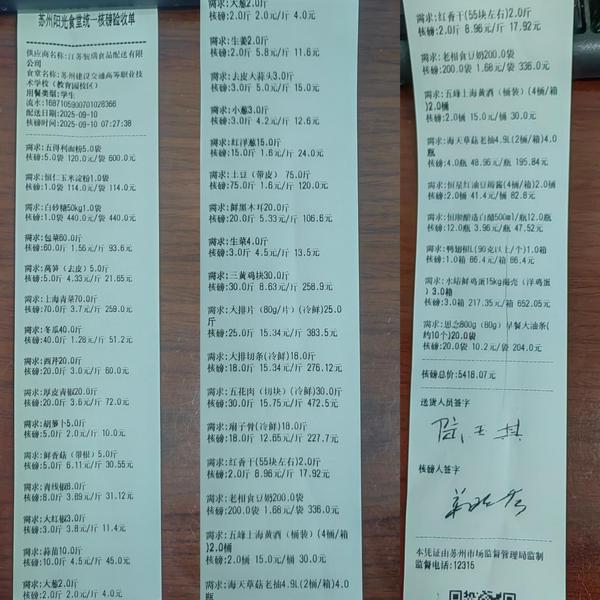 苏州阳光食堂统一核磅验收单
供应商名称:江苏骏瑞食品配送有限
公司
食堂名称:苏州建设交通高等职业技
术学校（教育园校区）
用餐类型:学生
流水:1687105900701028366
配送日期:2025-09-10
核磅时间:2025-09-10 07:27:38
需求:五得利面粉5.0袋
核磅:5.0袋 120.0元/袋 600.0元
需求:恒仁玉米淀粉1.0袋
核磅:1.0袋 114.0元/袋 114.0元
需求:白砂糖50kg1.0袋
核磅:1.0袋 440.0元/袋 440.0元
需求:包菜60.0斤
核磅:60.0斤 1.56元/斤 93.6元
需求:莴笋（去皮）5.0斤
核磅:5.0斤 4.33元/斤 21.65元
需求:上海青菜70.0斤
核磅:70.0斤 3.7元/斤 259.0元
需求:冬瓜40.0斤
核磅:40.0斤 1.28元/斤 51.2元
需求:西芹20.0斤
核磅:20.0斤 3.0元/斤 60.0元
需求:厚皮青椒20.0斤
核磅:20.0斤 3.6元/斤 72.0元
需求:胡萝卜5.0斤
核磅:5.0斤 2.0元/斤 10.0元
需求:鲜香菇（带根）5.0斤
核磅:5.0斤 6.11元/斤 30.55元
需求:青线椒8.0斤
核磅:8.0斤 3.89元/斤 31.12元
需求:大红椒3.0斤
核磅:3.0斤 3.8元/斤 11.4元
需求:蒜苗10.0斤
核磅:10.0斤 4.5元/斤 45.0元
需求:大葱2.0斤
核磅:2.0斤 2.0元/斤 4.0元
需求:大葱2.0斤
核磅:2.0斤 2.0元/斤 4.0元
需求:生姜2.0斤
核磅:2.0斤 5.8元/斤 11.6元
需求:去皮大蒜头3.0斤
核磅:3.0斤 5.0元/斤 15.0元
需求:小葱3.0斤
核磅:3.0斤 4.2元/斤 12.6元
需求:红洋葱15.0斤
核磅:15.0斤 1.6元/斤 24.0元
需求:土豆（带皮） 75.0斤
核磅:75.0斤 1.6元/斤 120.0元
需求:鲜黑木耳20.0斤
核磅:20.0斤 5.33元/斤 106.6元
需求:生菜4.0斤
核磅:3.0斤 4.5元/斤 13.5元
需求:三黄鸡块30.0斤
核磅:30.0斤 8.63元/斤 258.9元
需求:大排片（80g/片）(冷鲜)25.0
斤
核磅:25.0斤 15.34元/斤 383.5元
需求:大排切条(冷鲜)18.0斤
核磅:18.0斤 15.34元/斤 276.12元
需求:五花肉（切块）(冷鲜)30.0斤
核磅:30.0斤 15.75元/斤 472.5元
需求:扇子骨(冷鲜)18.0斤
核磅:18.0斤 12.65元/斤 227.7元
需求:红香干(55块左右)2.0斤
核磅:2.0斤 8.96元/斤 17.92元
需求:老相食豆奶200.0袋
核磅:200.0袋 1.68元/袋 336.0元
需求:五峰上海黄酒（桶装）(4桶/箱
)2.0桶
核磅:2.0桶 15.0元/桶 30.0元
需求:海天草菇老抽4.9L(2桶/箱)4.0
瓶
需求:红香干(55块左右)2.0斤
核磅:2.0斤 8.96元/斤 17.92元
需求:老相食豆奶200.0袋
核磅:200.0袋 1.68元/袋 336.0元
需求:五峰上海黄酒（桶装）(4桶/箱
)2.0桶
核磅:2.0桶 15.0元/桶 30.0元
需求:海天草菇老抽4.9L(2桶/箱)4.0
瓶
核磅:4.0瓶 48.96元/瓶 195.84元
需求:恒星红油豆瓣酱(4桶/箱)2.0桶
核磅:2.0桶 41.4元/桶 82.8元
需求:恒顺酿造白醋500ml/瓶12.0瓶
核磅:12.0瓶 3.96元/瓶 47.52元
需求:鸭翅根L(90克以上/个)1.0箱
核磅:1.0箱 86.4元/箱 86.4元
需求:水站鲜鸡蛋15kg褐壳（洋鸡蛋
）3.0箱
核磅:3.0箱 217.35元/箱 652.05元
需求:思念800g（80g）早餐大油条(
约10个)20.0袋
核磅:20.0袋 10.2元/袋 204.0元
核磅总价:5418.07元
送货人员签字
核磅人签字
本凭证由苏州市场监督管理局监制
监督电话:12315